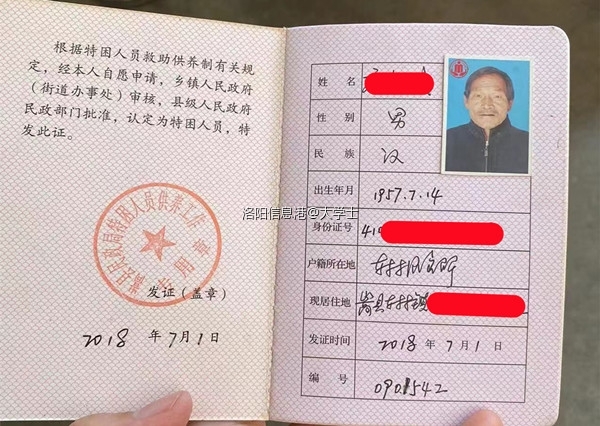 根据特困人员救助供养制有关规
定，经本人自愿申请，乡镇人民政府
（街道办事处）审核，县级人民政府
民政部门批准，认定为特困人员，特
发此证。
嵩县民政局特困人员供养工作
发证（盖章）
2018 年 7 月 1 日
洛阳信息港@大学士
姓 名
性 别 男
民 族 汉
出生年月 1957.7.14
身份证号 41
户籍所在地 车村派出所
现居住地 嵩县车村镇
发证时间 2018 年 7 月 1 日
编 号 0901542